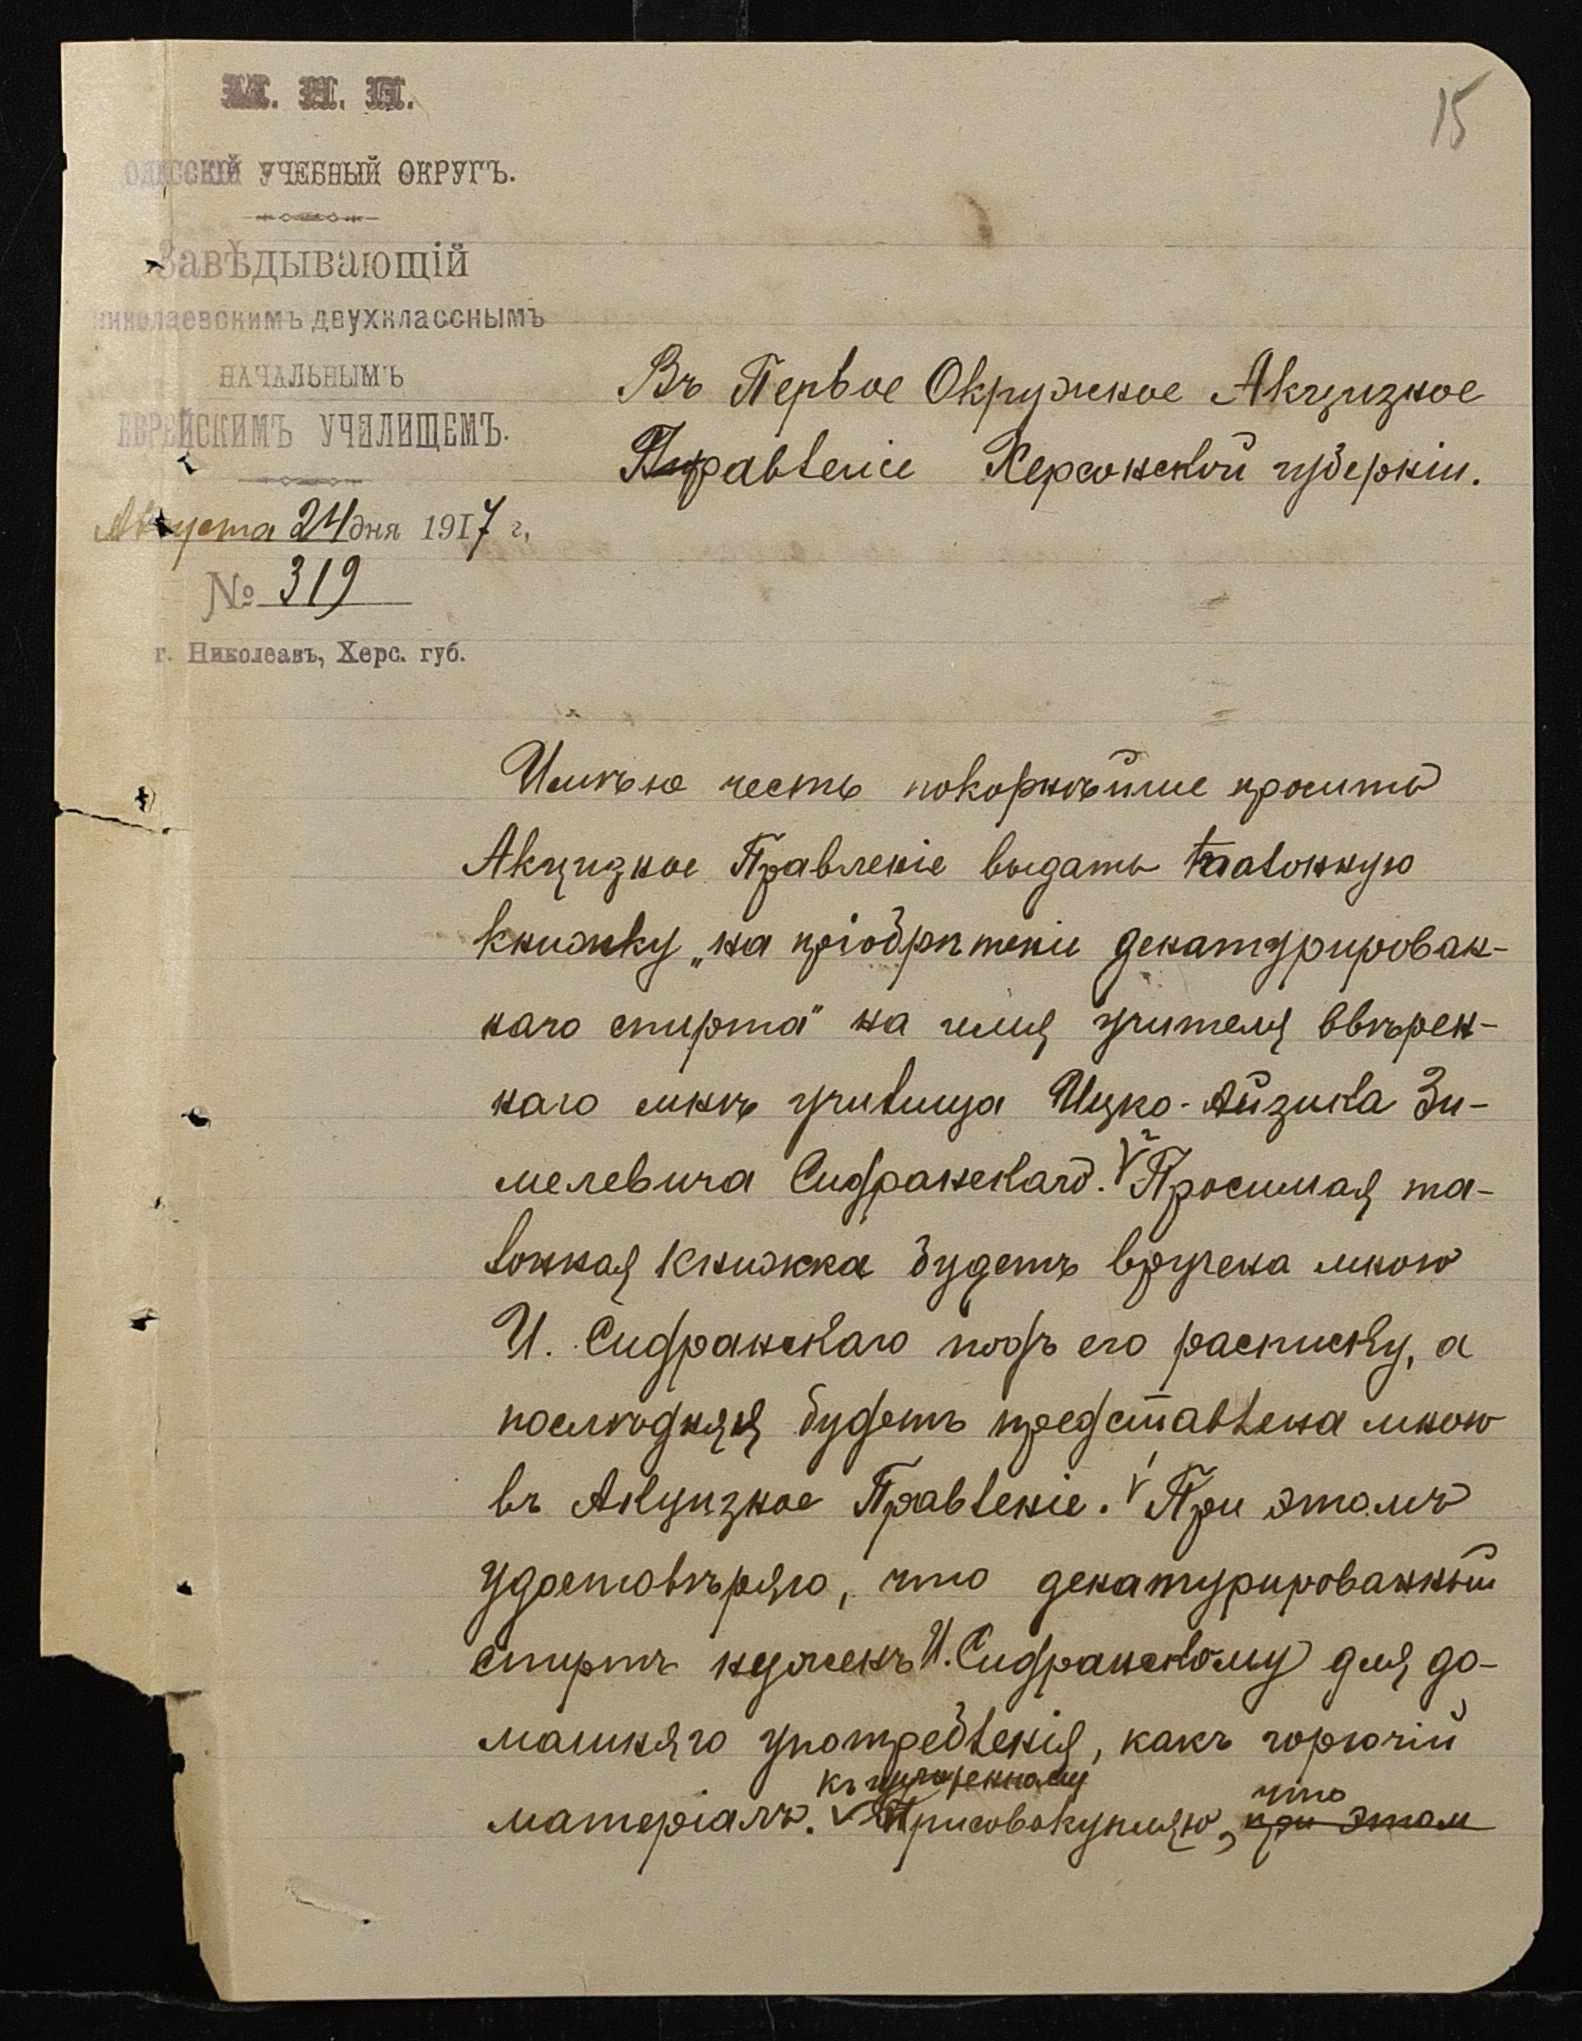 15
М. Н. П.
ОДЕССКІЙ УЧЕБНЫЙ ОКРУГЪ.
Завѣдывающій
николаевскимъ двухкласснымъ
НАЧАЛЬНЫМЪ
ЕВРЕЙСКИМЪ УЧИЛИЩЕМЪ.
Августа 24 дня 1917 г.
№ 319
г. Николеавъ, Херс. губ.
Въ Первое Окружное Акцизное
Правленіе Херсонской губерніи.
Имѣю честь покорнѣйше просить
Акцизное Правленіе выдать талонную
книжку „на пріобрѣтеніе денатурирован-
наго спирта" на имя учителя ввѣрен-
наго мнѣ училища Ицко-Айзика Зи-
мелевича Сидранскаго. 2 Просимая та-
лонная книжка будетъ вручена мною
И. Сидранскаго подъ его расписку, а
послѣдняя будетъ представлена мною
въ Акцизное Правленіе. 1 При этомъ
удостовѣряю, что денатурированный
спиртъ нуженъ И. Сидранскому для до-
машняго употребленія, какъ горючій
къ изложенному что
матеріалъ. Присовокупляю, при этом